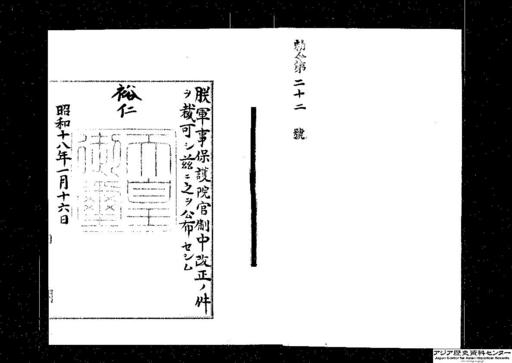 勅令第二十二號
朕軍事保護院官制中改正ノ件
ヲ裁可シ茲ニ之ヲ公布セシム
裕仁
天皇御璽
昭和十八年一月十六日
アジア歴史資料センター
Japan Center for Asian Historical Records